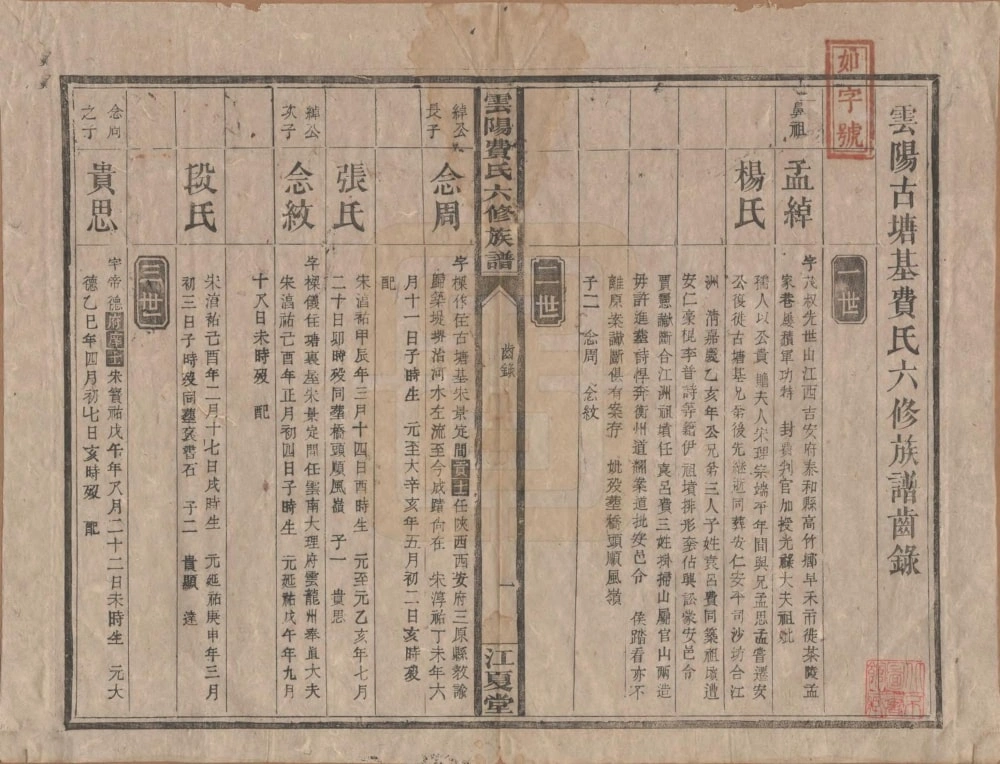 如字號
雲陽古塘基費氏六修族譜齒錄
一世
鼻祖
孟綽
字茂秋先世山江西吉安府泰和縣高竹鄉早禾市徙茶陵孟
家巷屢積軍功特 封費判官加授光祿大夫祖妣
楊氏
孺人以公貴 贈夫人宋理宗端平年間與兄孟思孟嘗遷安
公後徙古塘基兄弟後先繼逝同葬安仁安平司沙坊合江
洲 清嘉慶乙亥年公兄弟三人子姓袁呂費同築祖墳遭
安仁豪棍李昔詩等籍伊祖墳排形奎佔興訟蒙安邑令
賈 讞斷合江洲祖墳任袁呂費三姓掛掃山屬官山兩造
毋許進葬詩悍奔衡州道翻案道批安邑令 侯踏看亦不
離原案讞斷俱有案存 妣歿葬橋頭順風嶺
子二 念周 念紋
二世
雲陽費氏六修族譜
齒錄
一
江夏堂
綽公長子
念周
字樸作住古塘基宋景定間貢士任陝西西安府三原縣教諭
歸築堤堺治河水左流至今咸踏向在 宋淳祐丁未年六
月十一日子時生 元至大辛亥年五月初二日亥時歿
配
張氏
宋淳祐甲辰年三月十四日酉時生 元至元乙亥年七月
二十日卯時歿同葬橋頭順風嶺 子一 貴思
綽公次子
念紋
字樸儀任塘裏 宋景定間任雲南大理府雲龍州奉直大夫
宋淳祐己酉年正月初四日子時生 元延祐戊午年九月
十八日未時歿 配
段氏
宋淳祐己酉年二月十七日戌時生 元延祐庚申年三月
初三日子時歿同葬 石 子二 貴顯 達
三世
念周之子
貴思
字帝德府庠士宋寶祐戊午年八月二十二日未時生 元大
德乙巳年四月初七日亥時歿 配